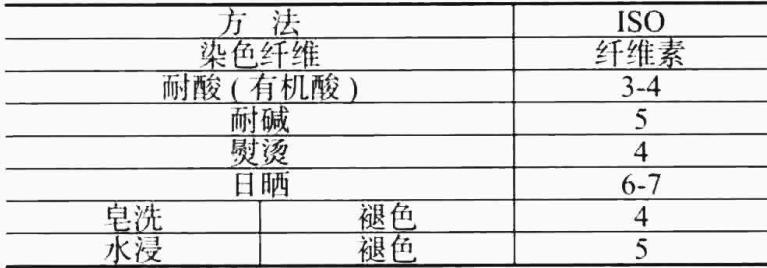 方 法 ISO
染色纤维 纤维素
耐酸(有机酸) 3-4
耐碱 5
熨烫 4
日晒 6-7
皂洗 褪色 4
水浸 褪色 5